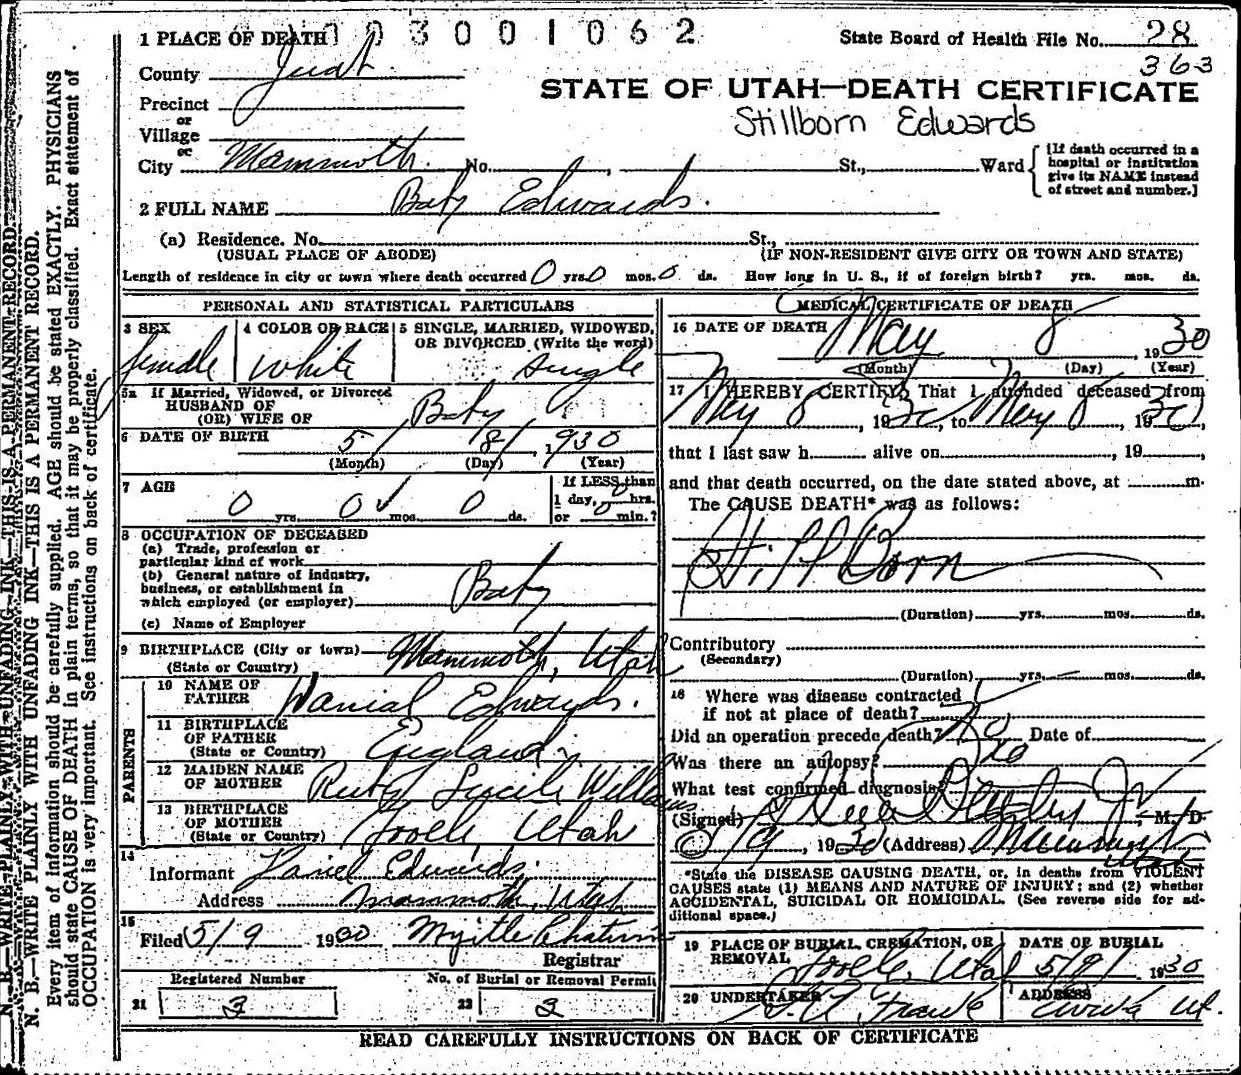 1 PLACE OF DEATH 003001062 State Board of Health File No. 28
363
County Juab
STATE OF UTAH—DEATH CERTIFICATE
Precinct
or
Stillborn Edwards
Village
or
City Mammoth. No. , St., Ward
[If death occurred in a hospital or institution give its NAME instead of street and number.]
2 FULL NAME Baby Edwards.
(a) Residence. No. St.,
(USUAL PLACE OF ABODE) (IF NON-RESIDENT GIVE CITY OR TOWN AND STATE)
Length of residence in city or town where death occurred 0 yrs. 0 mos. 0 ds. How long in U. S., if of foreign birth? yrs. mos. ds.
PERSONAL AND STATISTICAL PARTICULARS
3 SEX 4 COLOR OR RACE 5 SINGLE, MARRIED, WIDOWED,
OR DIVORCED (Write the word)
female white single
5a If Married, Widowed, or Divorced
HUSBAND OF
(OR) WIFE OF Baby
6 DATE OF BIRTH 5/ 8/ 1930
(Month) (Day) (Year)
7 AGE 0 yrs. 0 mos. 0 ds.
If LESS than
1 day, 0 hrs.
or 0 min.?
8 OCCUPATION OF DECEASED
(a) Trade, profession or
particular kind of work
(b) General nature of industry,
business, or establishment in
which employed (or employer) Baby
(c) Name of Employer
9 BIRTHPLACE (City or town) Mammoth, Utah
(State or Country)
PARENTS
10 NAME OF
FATHER Danial Edwards.
11 BIRTHPLACE
OF FATHER
(State or Country) England.
12 MAIDEN NAME
OF MOTHER Ruby Lucile Williams
13 BIRTHPLACE
OF MOTHER
(State or Country) Tooele, Utah
14
Informant Daniel Edwards.
Address Mammoth, Utah
15
Filed 5/9 1930 Myrtle
Registrar
Registered Number No. of Burial or Removal Permit
21 3 22 3
MEDICAL CERTIFICATE OF DEATH
16 DATE OF DEATH May 8, 1930
(Month) (Day) (Year)
17 I HEREBY CERTIFY, That I attended deceased from
May 8, 1930, to May 8, 1930,
that I last saw h alive on , 19 ,
and that death occurred, on the date stated above, at m.
The CAUSE DEATH* was as follows:
Still Born
(Duration) yrs. mos. ds.
Contributory
(Secondary)
(Duration) yrs. mos. ds.
18 Where was disease contracted
if not at place of death?
Did an operation precede death? No Date of
Was there an autopsy? No
What test confirmed diagnosis?
(Signed) , M. D.
5/9, 1930 (Address) Mammoth
Utah
*State the DISEASE CAUSING DEATH, or, in deaths from VIOLENT
CAUSES state (1) MEANS AND NATURE OF INJURY; and (2) whether
ACCIDENTAL, SUICIDAL OR HOMICIDAL. (See reverse side for ad-
ditional space.)
19 PLACE OF BURIAL, CREMATION, OR
REMOVAL Tooele, Utah
DATE OF BURIAL
5/9/ 1930
20 UNDERTAKER
ADDRESS
Eureka Ut.
READ CAREFULLY INSTRUCTIONS ON BACK OF CERTIFICATE
N. B.—WRITE PLAINLY WITH UNFADING INK—THIS IS A PERMANENT RECORD.
N. B.—WRITE PLAINLY WITH UNFADING INK—THIS IS A PERMANENT RECORD.
Every item of information should be carefully supplied. AGE should be stated EXACTLY. PHYSICIANS
should state CAUSE OF DEATH in plain terms, so that it may be properly classified. Exact statement of
OCCUPATION is very important. See instructions on back of certificate.